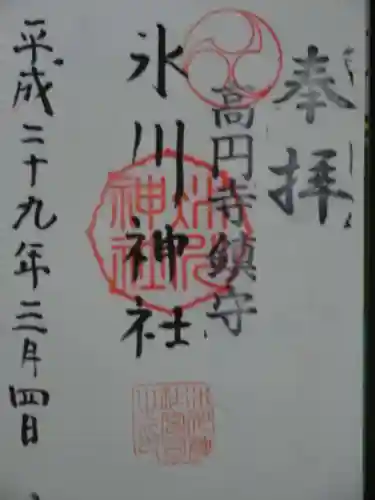 奉拝
高円寺鎮守
氷川神社
平成二十九年三月四日
氷川神社